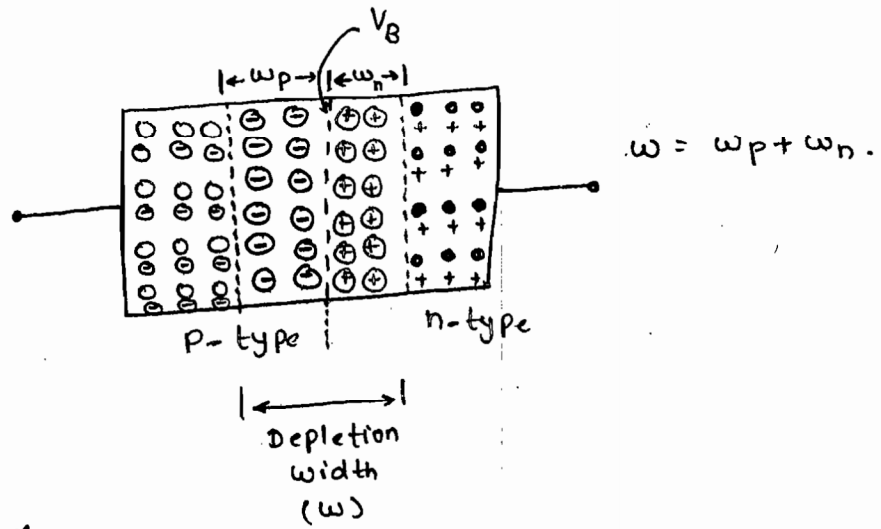 V_B
|←ωp→|←ωn→|
ω = ωp + ωn.
p-type
n-type
Depletion
width
(ω)